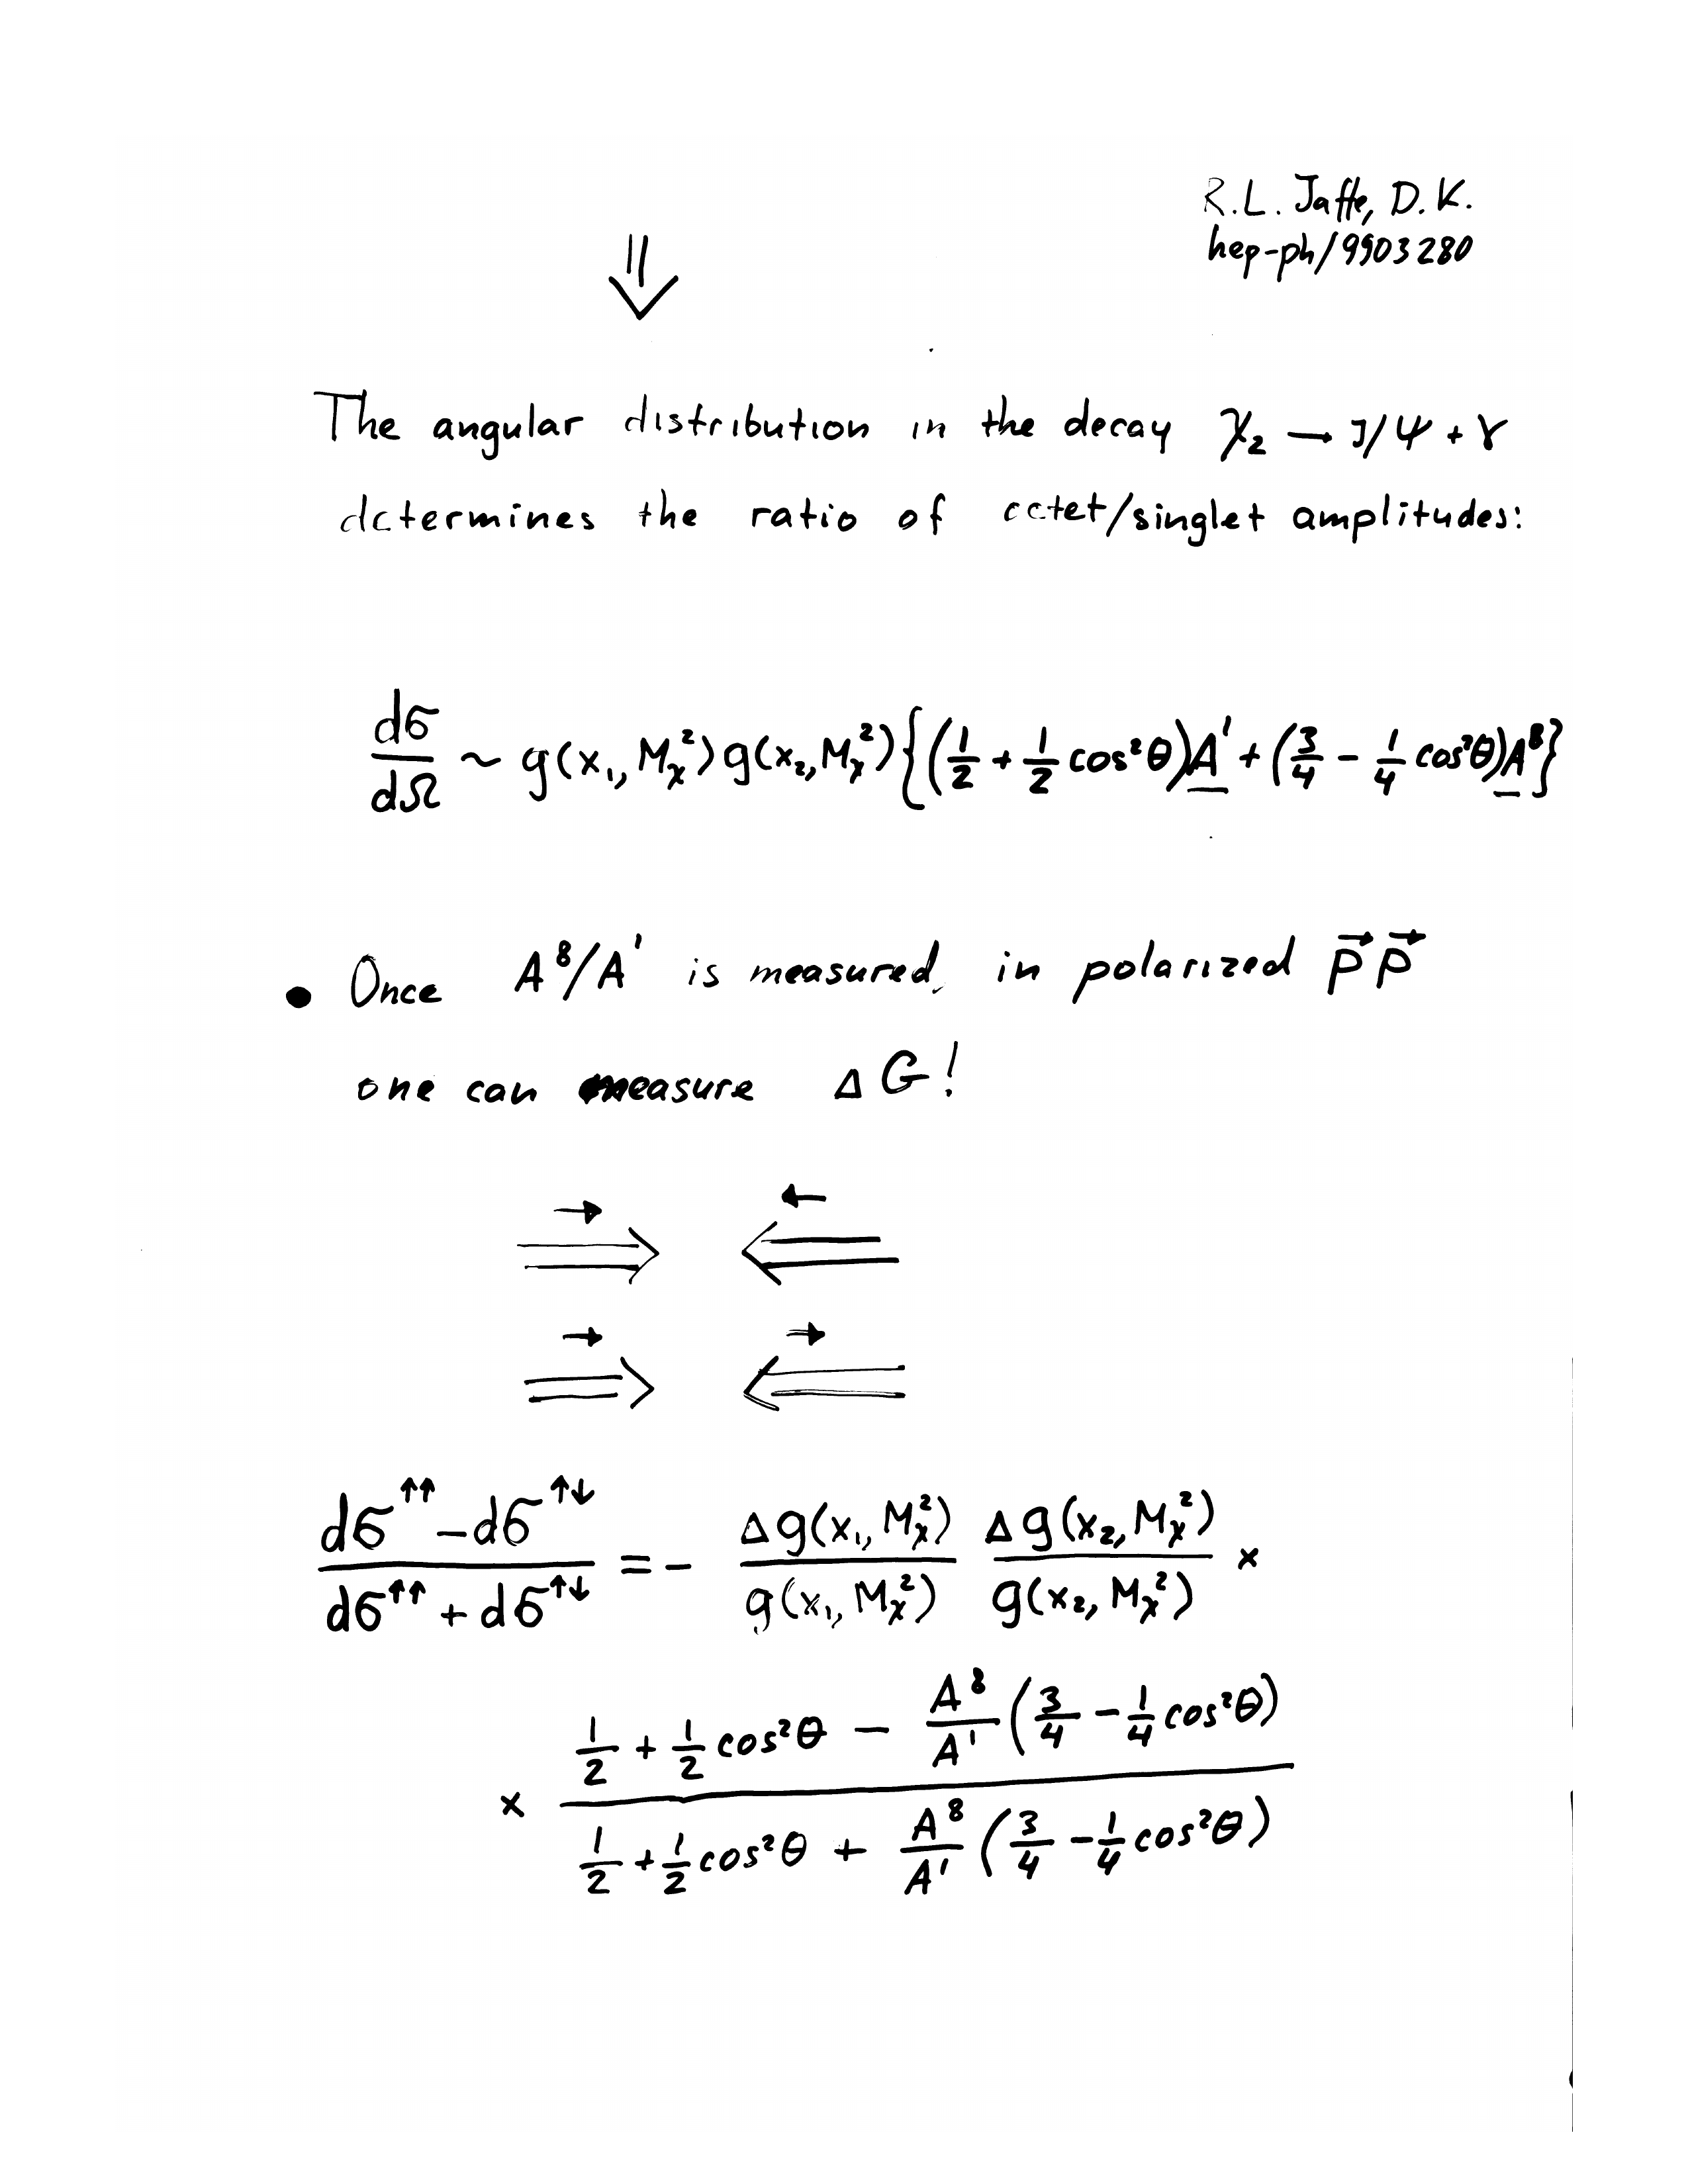 R.L. Jaffe, D.K.
hep-ph/9903280
⇓
The angular distribution in the decay χ₂ → J/Ψ + γ
determines the ratio of octet/singlet amplitudes:
dσ/dΩ ~ g(x₁, M_χ²) g(x₂, M_χ²) {(1/2 + 1/2 cos²θ) A¹ + (3/4 − 1/4 cos²θ) A⁸}
• Once A⁸/A¹ is measured, in polarized p⃗p⃗
one can measure ΔG!
→ ←
⇒ ⇐
→ →
⇒ ⇐
(dσ^↑↑ − dσ^↑↓)/(dσ^↑↑ + dσ^↑↓) = − Δg(x₁, M_χ²)/g(x₁, M_χ²) Δg(x₂, M_χ²)/g(x₂, M_χ²) ×
× (1/2 + 1/2 cos²θ − A⁸/A¹ (3/4 − 1/4 cos²θ))/(1/2 + 1/2 cos²θ + A⁸/A¹ (3/4 − 1/4 cos²θ))